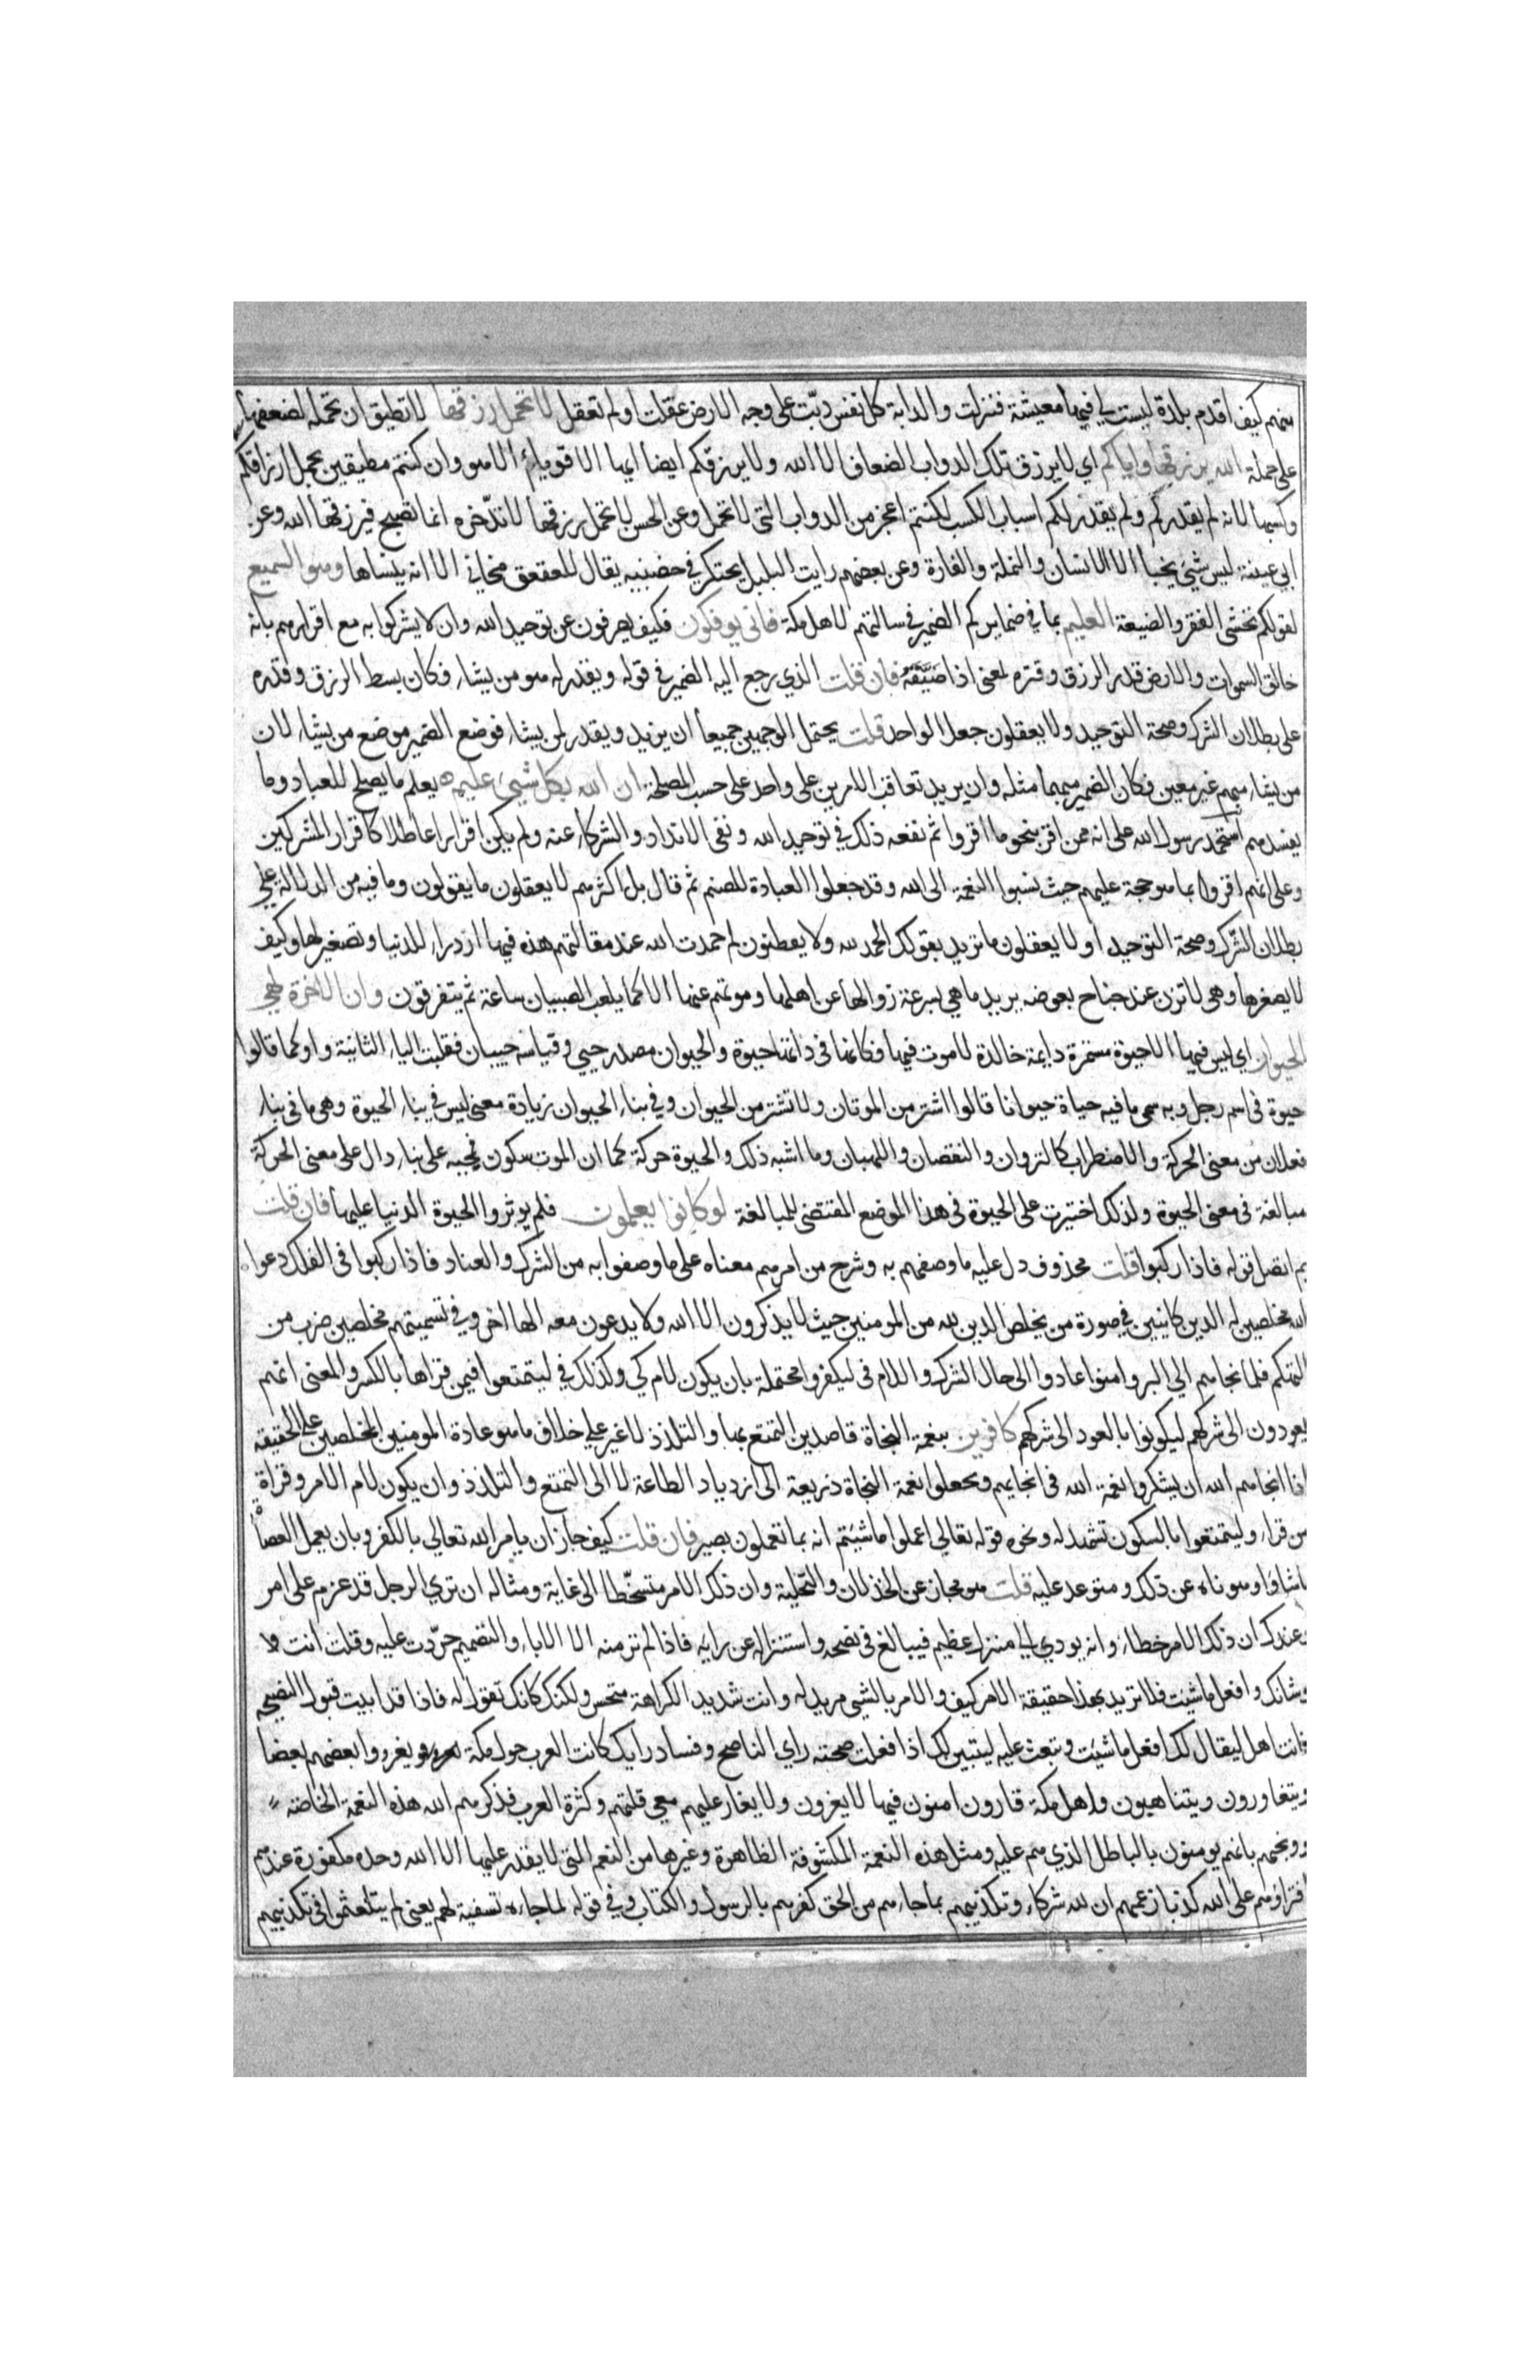 منهم كيف اقدم بلدة ليست لي فيها معيشة فنزلت والدابة كل نفس دبّت على وجه الارض عقلت او لم تعقل لا تحمل رزقها لا تطيق ان تحمله لضعفها
على حمله الله يرزقها واياكم اي لا يرزق تلك الدواب الضعاف الا الله ولا يرزقكم ايضا ايها الاقوياء الا هو وان كنتم مطيقين بحمل ارزاقكم
وكسبها لانه لم يقدركم ولم يقدر لكم اسباب الكسب لكنتم اعجز من الدواب التي لا تحمل وعن الحسن لا تحمل رزقها لا تدّخره انما تصبح فيرزقها الله وعن
ابي عيينة ليس شيء يخبأ الا الانسان والنملة والفارة وعن بعضهم رايت البلبل يحتكر في حضنيه يقال للعقعق مخاني الا انه ينساها وهو السميع
لقولكم نخشى الفقر والضيعة العليم بما في ضمايركم الضمير في سالتهم لاهل مكة فانى يوفكون فكيف يصرفون عن توحيد الله وان لا يشركوا به مع اقرارهم بانه
خالق السموات والارض قدر الرزق وقتره بمعنى اذا ضيّقه فان قلت الذي رجع اليه الضمير في قوله ويقدر له هو من يشاء فكان بسط الرزق وقدره
على بطلان الشرك وصحة التوحيد ولا يعقلون جعل الواحد قلت يحتمل الوجهين جميعا ان يريد ويقدر لمن يشاء فوضع الضمير موضع من يشاء لان
من يشاء مبهم غير معين فكان الضمير مبهما مثله وان يريد تعاقب الامرين على واحد على حسب المصلحة ان الله بكل شيء عليم يعلم ما يصلح للعباد وما
يفسدهم استحمد رسول الله على انه ممن اقر بنحو ما اقروا ثم نفعه ذلك في توحيد الله ونفي الانداد والشركاء عنه ولم يكن اقرارا عاطلا كاقرار المشركين
وعلى انهم اقروا بما هو حجة عليهم حيث نسبوا النعمة الى الله وقد جعلوا العبادة للصنم ثم قال بل اكثرهم لا يعقلون ما يقولون وما فيه من الدلالة على
بطلان الشّرك وصحة التوحيد او لا يعقلون ما تريد بقولك الحمد لله ولا يفطنون لم حمدت الله عند مقالتهم هذه فيها ازدراء للدنيا وتصغير لها وكيف
لا يصغرها وهي لا تزن عند جناح بعوضه يريد ما هي لسرعة زوالها عن اهلها وموتهم عنها الا كما يلعب الصبيان ساعة ثم يتفرقون وان الاخرة لهي
الحيوان اي ليس فيها الا حيوة مستمرة دايمة خالدة لا موت فيها فكانها في ذاتها حيوة والحيوان مصدر حيي وقياسه حييان فقلبت الياء الثانية واوا كما قالوا
حيوة في اسم رجل وبه سمي ما فيه حياة حيوانا قالوا اشتر من الموتان ولا تشتر من الحيوان وفي بناء الحيوان زيادة معنى ليس في بناء الحيوة وهي ما في بناء
فعلان من معنى الحركة والاضطراب كالنزوان والنغضان واللهبان وما اشبه ذلك والحيوة حركة كما ان الموت سكون فمجيه على بناء دال على معنى الحركة
مبالغة في معنى الحيوة ولذلك اختيرت على الحيوة في هذا الموضع المقتضي للمبالغة لو كانوا يعلمون فلم يوثروا الحيوة الدنيا عليها فان قلت
بم اتصل قوله فاذا ركبوا قلت محذوف دل عليه ما وصفهم به وشرح من امرهم معناه على ما وصفوا به من الشرك والعناد فاذا ركبوا في الفلك دعوا
الله مخلصين له الدين كاينين في صورة من يخلص الدين لله من المومنين حيث لا يذكرون الا الله ولا يدعون معه الها اخر وفي تسميتهم مخلصين ضرب من
التهكم فلما نجاهم الي البر وامنوا عادوا الى حال الشرك واللام في ليكفروا محتملة بان يكون لام كي وكذلك في ليتمتعوا فيمن قراها بالكسر والمعنى انهم
يعودون الى شركهم ليكونوا بالعود الى شركهم كافرين بنعمة النجاة قاصدين التمتع بها والتلذذ لا غير على خلاف ما هو عادة المومنين المخلصين على الحقيقة
اذا انجاهم الله ان يشكروا نعمة الله في انجايهم ويجعلوا نعمة النجاة ذريعة الى ازدياد الطاعة لا الى التمتع والتلذذ وان يكون لام الامر وقراة
من قراء وليتمتعوا بالسكون تشهد له ونحوه قوله تعالي اعملوا ما شيتم انه بما تعملون بصير فان قلت كيف جاز ان يامر الله تعالي بالكفر وبان يعمل العصاة
ما شاؤا وهو ناه عن ذلك ومتوعد عليه قلت هو مجاز عن الخذلان والتخلية وان ذلك الامر متسخّط الى غاية ومثاله ان تري الرجل قد عزم على امر
وعندك ان ذلك الامر خطاء وانه يودي الي منزل عظيم فيبالغ في نصحه واستنزاله عن رايه فاذا لم تر منه الا الاباء والتصميم حرّدت عليه وقلت انت
وشانك وافعل ما شيت فلا تريد بهذا حقيقة الامر كيف والامر بالشي مريد له وانت شديد الكراهة متحسر ولكنك كانك تقول له فاذا قد ابيت قبول النصيحه
فانت اهل ليقال لك افعل ما شيت وتبعث عليه ليتبين لك اذا فعلت صحته راي الناصح وفساد رايك كانت العرب حول مكة يغزو بعضهم بعضا
ويتغاورون ويتناهبون واهل مكة قارون امنون فيها لا يغزون ولا يغار عليهم مع قلتهم وكثرة العرب فذكرهم الله هذه النعمة الخاصة
ووبخهم بانهم يومنون بالباطل الذي هم عليه ومثل هذه النعمة المكشوفة الظاهرة وغيرها من النعم التي لا يقدر عليها الا الله وحده مكفورة عندهم
افتراؤهم على الله كذبا زعمهم ان لله شركاء وتكذيبهم بما جاءهم من الحق كفرهم بالرسول والكتاب وفي قوله لما جاءه تسفيه لهم يعني لم يتلعثموا في تكذيبهم